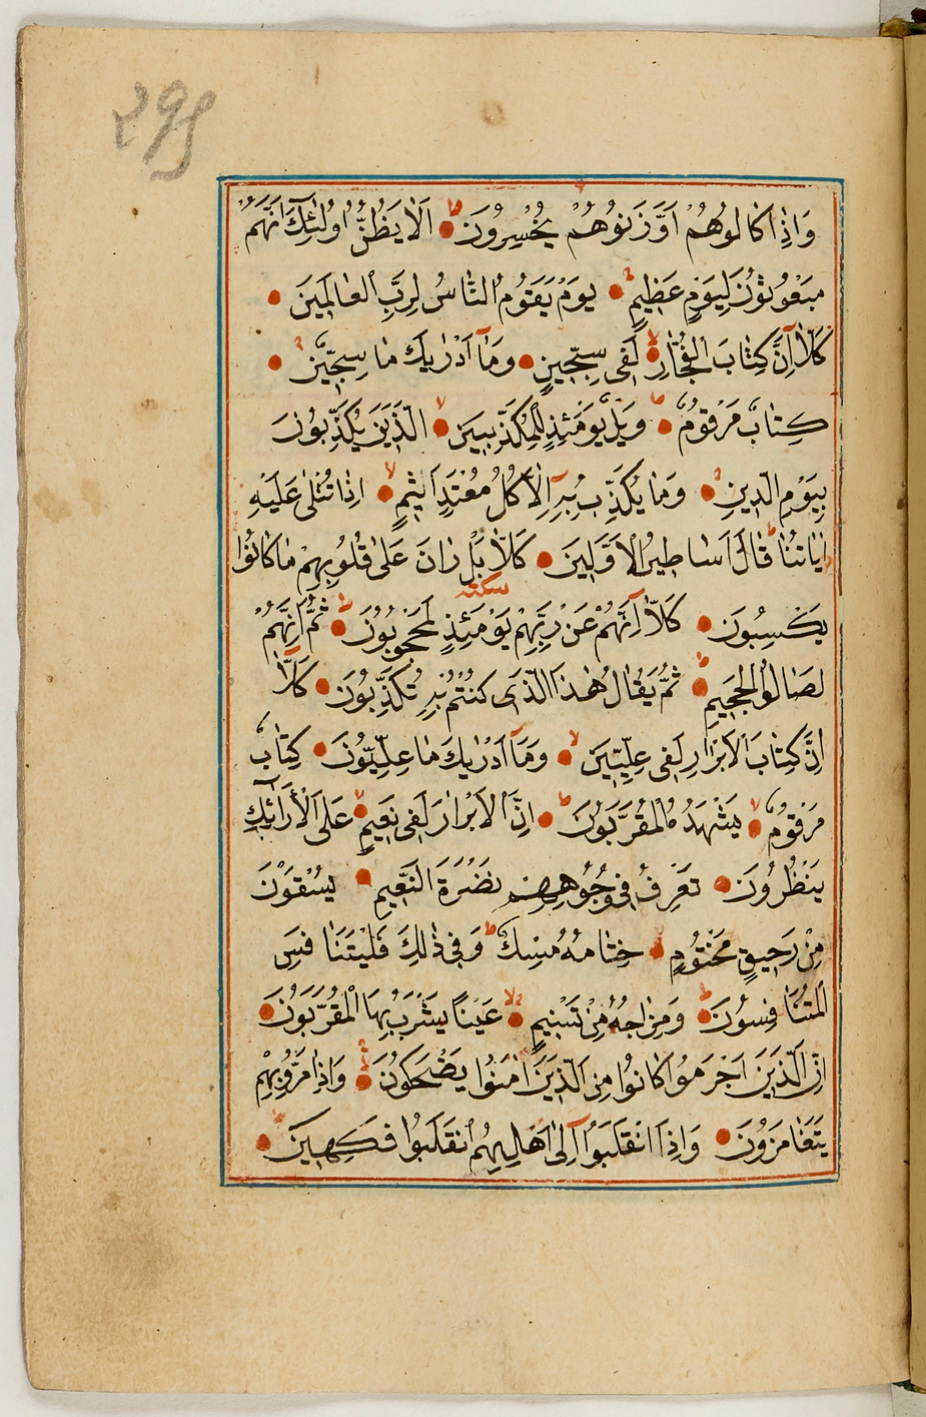 295
وَاِذَا كَالُوهُمْ اَوْ وَزَنُوهُمْ يُخْسِرُونَ ط اَلَا يَظُنُّ اُولٰئِكَ اَنَّهُمْ
مَبْعُوثُونَ لِيَوْمٍ عَظِيمٍ يَوْمَ يَقُومُ النَّاسُ لِرَبِّ الْعَالَمِينَ
كَلَّا اِنَّ كِتَابَ الْفُجَّارِ لَفِى سِجِّينٍ وَمَا اَدْرٰيكَ مَا سِجِّينٌ
كِتَابٌ مَرْقُومٌ ط وَيْلٌ يَوْمَئِذٍ لِلْمُكَذِّبِينَ لا الَّذِينَ يُكَذِّبُونَ
بِيَوْمِ الدِّينِ وَمَا يُكَذِّبُ بِهِ اِلَّا كُلُّ مُعْتَدٍ اَثِيمٍ لا اِذَا تُتْلٰى عَلَيْهِ
اٰيَاتُنَا قَالَ اَسَاطِيرُ الْاَوَّلِينَ كَلَّا بَلْ رَانَ عَلٰى قُلُوبِهِمْ مَا كَانُوا
سكته
يَكْسِبُونَ كَلَّا اِنَّهُمْ عَنْ رَبِّهِمْ يَوْمَئِذٍ لَمَحْجُوبُونَ ط ثُمَّ اِنَّهُمْ
لَصَالُوا الْجَحِيمِ ط ثُمَّ يُقَالُ هٰذَا الَّذِى كُنْتُمْ بِهِ تُكَذِّبُونَ كَلَّا
اِنَّ كِتَابَ الْاَبْرَارِ لَفِى عِلِّيِّينَ لا وَمَا اَدْرٰيكَ مَا عِلِّيُّونَ كِتَابٌ
مَرْقُومٌ لا يَشْهَدُهُ الْمُقَرَّبُونَ ط اِنَّ الْاَبْرَارَ لَفِى نَعِيمٍ لا عَلَى الْاَرَائِكِ
يَنْظُرُونَ تَعْرِفُ فِى وُجُوهِهِمْ نَضْرَةَ النَّعِيمِ يُسْقَوْنَ
مِنْ رَحِيقٍ مَخْتُومٍ خِتَامُهُ مِسْكٌ ط وَفِى ذٰلِكَ فَلْيَتَنَافَسِ
الْمُتَنَافِسُونَ ط وَمِزَاجُهُ مِنْ تَسْنِيمٍ لا عَيْنًا يَشْرَبُ بِهَا الْمُقَرَّبُونَ ط
اِنَّ الَّذِينَ اَجْرَمُوا كَانُوا مِنَ الَّذِينَ اٰمَنُوا يَضْحَكُونَ وَاِذَا مَرُّوا بِهِمْ
يَتَغَامَزُونَ وَاِذَا انْقَلَبُوا اِلٰى اَهْلِهِمُ انْقَلَبُوا فَكِهِينَ